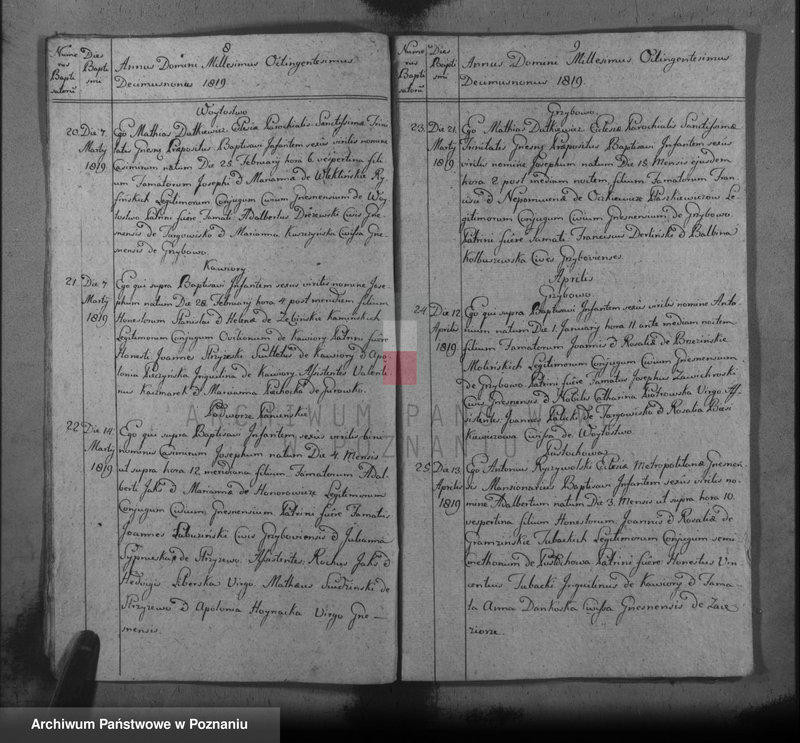 8
Nume
rus
Bapti
satorũ
Die
Bapti
smi
Annus Domini Millesimus Octingentesimus
Decimusnonus 1819
Woytostwo
20. Die 7. Ego Mathias Dutkiewicz Eclesiæ Parochialis Sanctissimæ Trini
Martij tatis Gnesnæ Præpositus Baptisavi Infantem sexus virilis nomine
1819 Casimirum natum Die 25 February hora 6 vespertina fili
um Famatorum Josephi & Marianna de
Legitimorum Conjugum Civium Gnesnensium de Woy
tostwo Patrini fuere Famati Adalbertus Drzewski Civis Gne
snensis de Targowisko & Marianna Kuszyńska Civissa Gne
snensis de Grzybowo
Kawiory
21. Die 7 Ego qui supra Baptisavi Infantem sexus virilis nomine Jose
Martij phum natum Die 28 February hora 4 post meridiem filium
1819 Honestorum Stanislai & Helenæ de Kamińskich
Legitimorum Conjugum de Kawiory Patrini fuere
Honesti Joannes Stryzeski de Kawiory & Apo
lonia Inquilina de Kawiory Asistentes Valenti
nus Kaczmarek & Marianna de Żurowko
Podworze Panienskie
22 Die 14 Ego qui supra Baptisavi Infantem sexus virilis binu
Martij nominus Casimirum Josephum natum Die 4 Mensis
1819 ut supra hora 12 meridiana filium Famatorum Adal
berti Jaks & Marianna de Legitimorum
Conjugum Civium Gnesnensium Patrini fuere Famatus
Joannes Civis Grzybovensis & Julianna
de Strzyzewo Asistentes Rochus Jaks &
Hedvigis Liberska Virgo Mathæus de
Strzyzewo & Apolonia Hoynacka Virgo Gne
snensis.
9
Nume
rus
Bapti
satorũ
Die
Bapti
smi
Annus Domini Millesimus Octingentesimus
Decimusnonus 1819.
Grzybowo
23. Die 21. Ego Mathias Dutkiewicz Eclesiæ Parochialis Sanctissimæ
Martij Trinitatis Gnesnæ Præpositus Baptisavi Infantem sexus
1819 virilis nomine Josephum natum Die 18 Mensis ejusdem
hora 2 post mediam noctem filium Famatorum Fran
cisci & Nepomucena de Le
gitimorum Conjugum Civium Gnesnensium de Grzybowo
Patrini fuere Famati Franciscus Derliński & Balbina
Kolbuszewska Cives Grzybovienses.
Aprilis
Grzybowo
24 Die 12. Ego qui supra Baptisavi Infantem sexus virilis nomine Anto
Aprilis nium natum Die 1 January hora 11 ante mediam noctem
1819 filium Famatorum Joannis & Rosaliæ de Brzezinskie
Molińskich Legitimorum Conjugum Civium Gnesnensium
de Grzybowo Patrini fuere Famatus Josephus Zawichroski
Civis Gnesnensis & Natalis Catharina Piotrowska Virgo. As
sistentes Joannes de Targowisko & Rosalia
Civissa de Woytostwo.
Pustachowa
25. Die 13. Ego Antonius Ryszywolski Eclesiæ Metropolitanæ Gnesnen
Aprilis sis Mansionarius Baptisavi Infantem sexus virilis no
1819 mine Adalbertum natum Die 3. Mensis ut supra hora 10.
vespertina filium Honestorum Joannis & Rosaliæ de
Tubackich Legitimorum Conjugum semi
methonum de Pustochowa Patrini fuere Honestus Vin
centius Tubacki Inquilinus de Kawiory & Fama
ta Anna Dankoska Civissa Gnesnensis de Zawie
ziorze.
ARCHIWUM PAŃSTWOWE
W POZNANIU
Archiwum Państwowe w Poznaniu